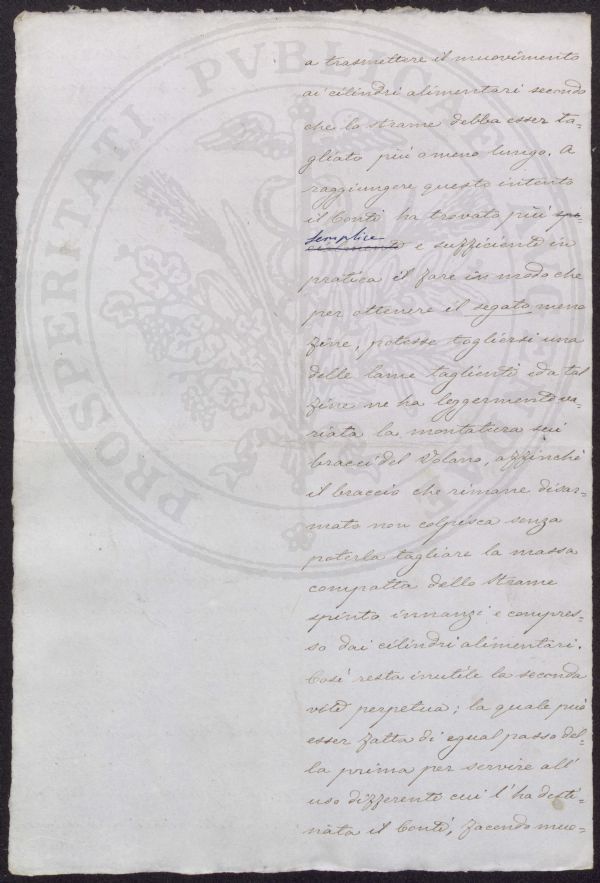 a trasmettere il muovimento
ai cilindri alimentari secondo
che lo strame debba esser ta=
gliato più o meno lungo. A
raggiungere questo intento
il Conti ha trovato più spe=
semplice
e sufficiente in
pratica il fare in modo che
per ottenere il segato meno
fine, potesse togliersi una
delle lame taglienti e da tal
fine ne ha leggermente va=
riata la montatura sui
bracci del Volano, affinchè
il braccio che rimane disar=
mato non colpisca senza
poterla tagliare la massa
compatta dello Strame
spinto innanzi e compres=
so dai cilindri alimentari.
Così resta inutile la seconda
vite perpetua; la quale può
esser fatta di egual passo del=
la prima per servire all'
uso differente cui l'ha desti=
nata il Conti, facendo muo=
PROSPERITATI PVBLICAE AVGENDAE